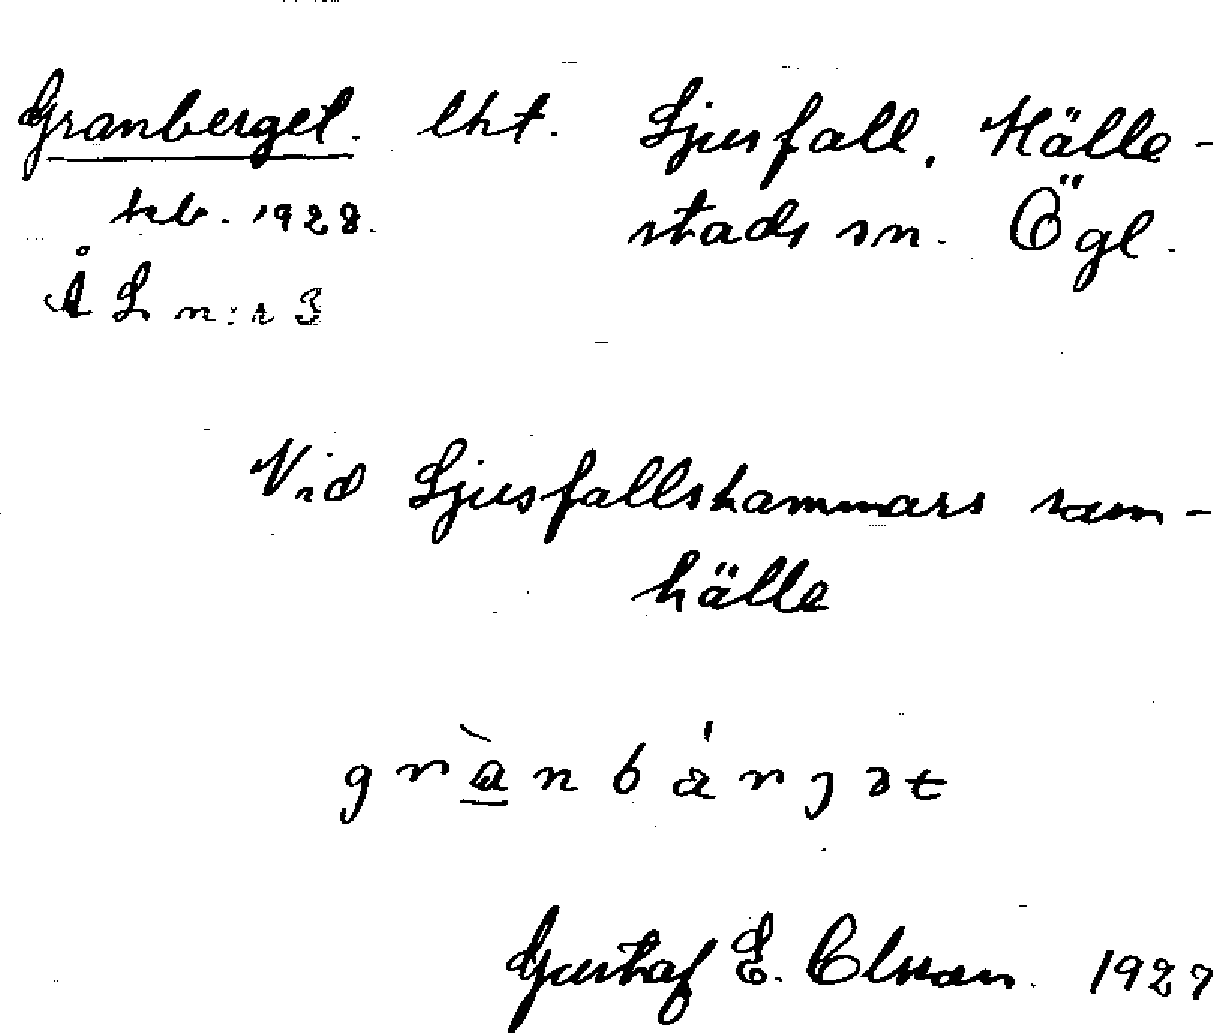 Granberget. lht. Ljusfall, Hälle-
tab. 1928. stads sn. Ögl.
Å L n:r 3
Vid Ljusfallshammars sam-
hälle
grànbárjət
Gustaf E. Olsson. 1927